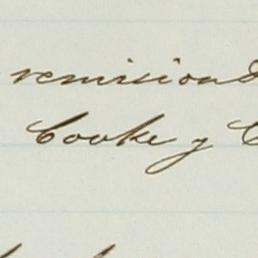 remision
Cooke y C